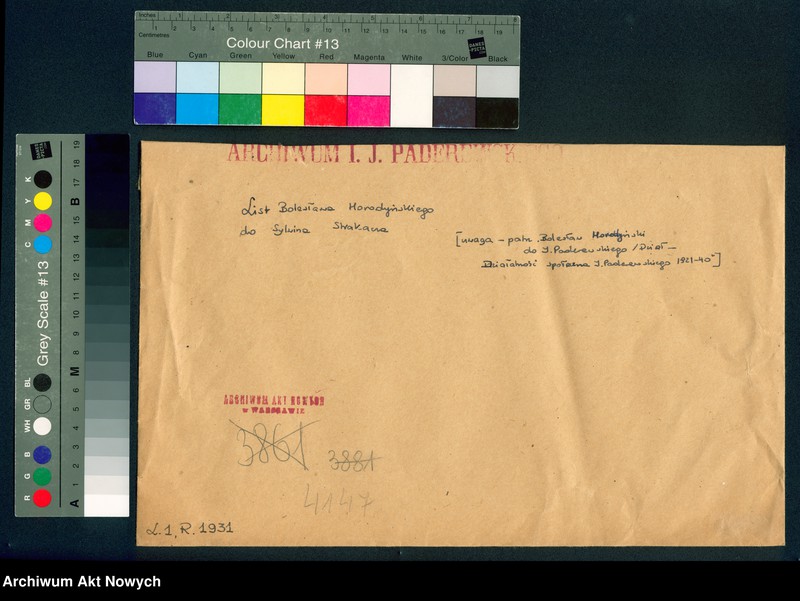 Inches
Centimetres
Colour Chart #13
DANES
PICTA
Blue Cyan Green Yellow Red Magenta White 3/Color Black
Grey Scale #13
C M Y K
R G B WH GR BL
A M B
ARCHIWUM I. J. PADEREWSKIEGO
List Bolesława Horodyńskiego
do Sylwina Strakacza
[uwaga – patrz Bolesław Horodyński
do I. Paderewskiego / Dział –
Działalność społeczna I. Paderewskiego 1921-40"]
ARCHIWUM AKT NOWYCH
w WARSZAWIE
3861
3881
4147
L. 1, R. 1931
Archiwum Akt Nowych